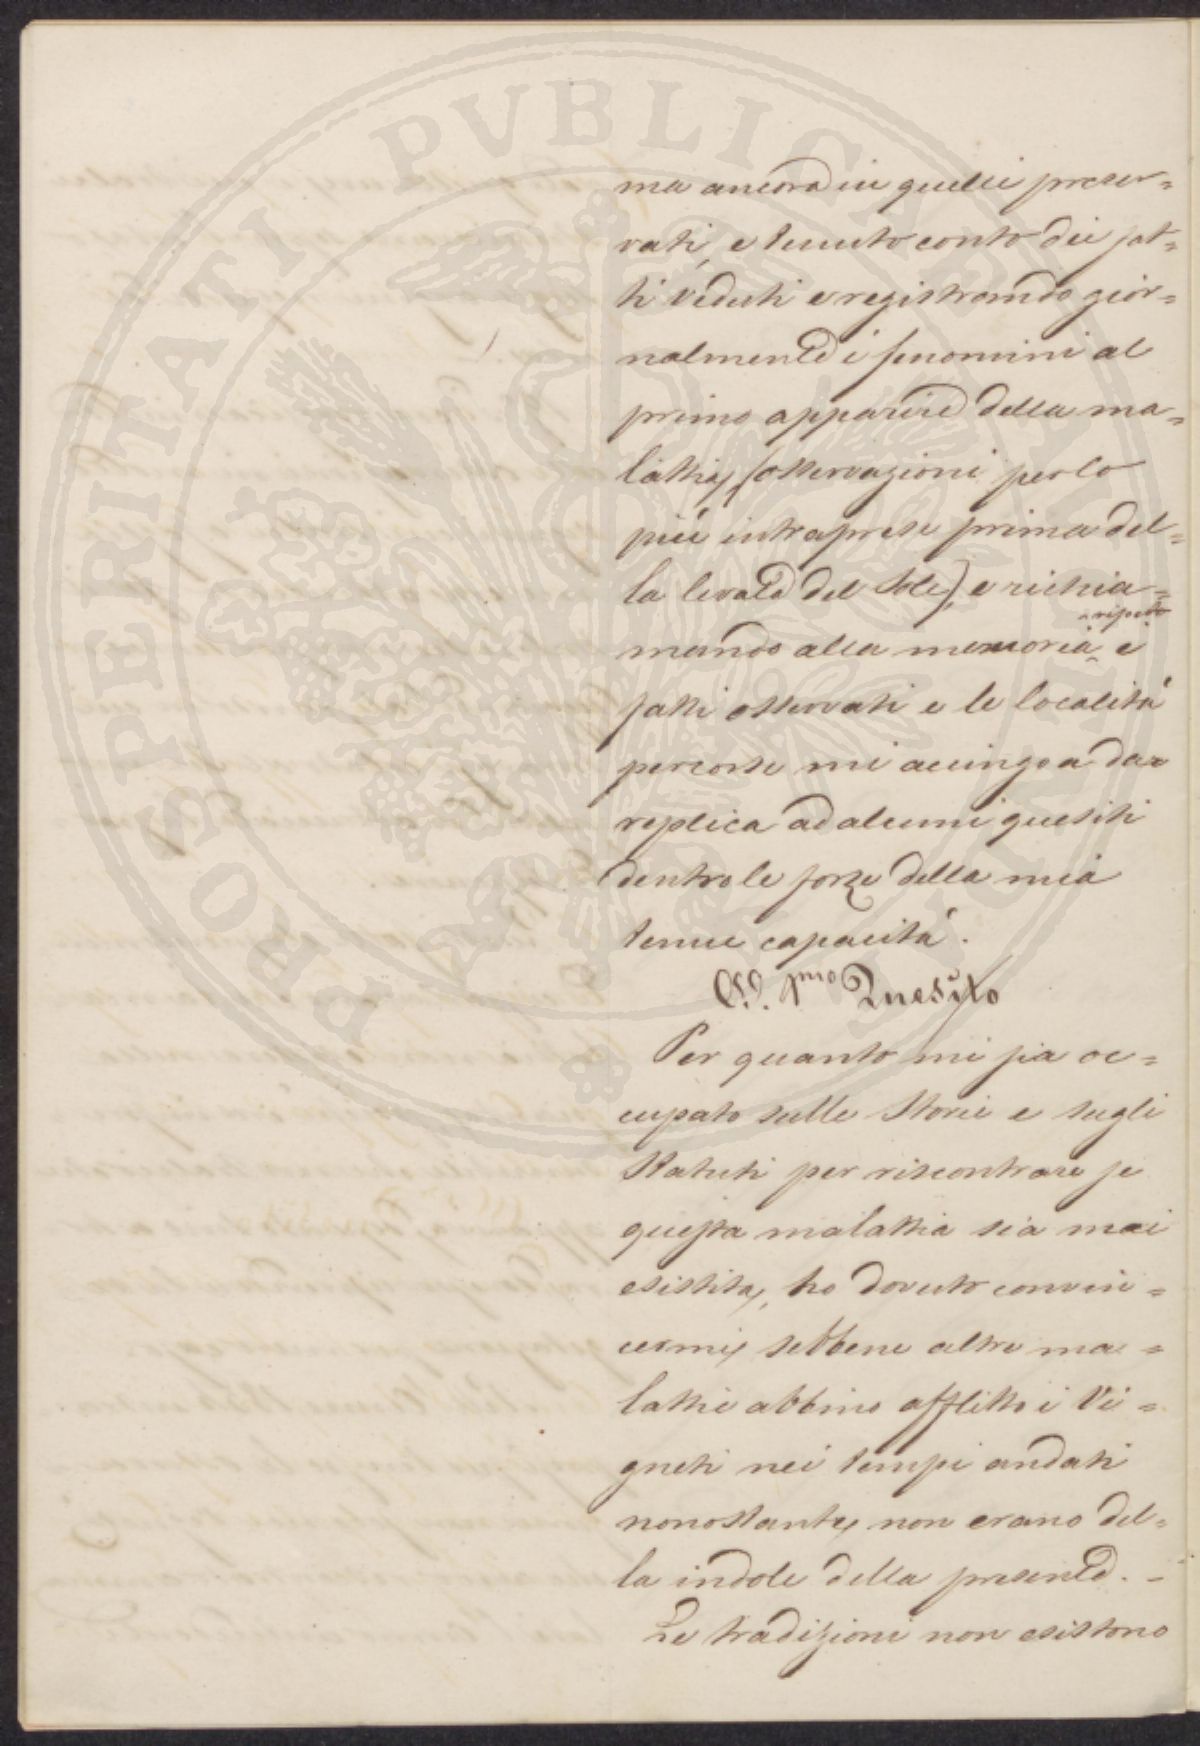 ma ancora in quelli preser=
vati, e tenuto conto dei fat=
ti veduti e registrando gior=
nalmente i fenomini al
primo apparire della ma=
lattia, (osservazioni perlo
più intraprese prima del=
la levata del Sole), e richia=
mando alla memoria, ripeto, i
fatti osservati e le località
percorse mi accingo a dar
replica ad alcuni quesiti
dentro le forze della mia
tenue capacità.
Al. Pmo Quesito
Per quanto mi sia oc=
cupato sulle Storie e sugli
Statuti per riscontrare se
questa malattia sia mai
esistita, ho dovuto convin=
cermi, sebbene altre ma=
lattie abbino afflitto i Vi=
gneti nei tempi andati
nonostante, non erano del=
la indole della presente. -
Le tradizioni non esistono
PROSPERITATI PVBLICAE